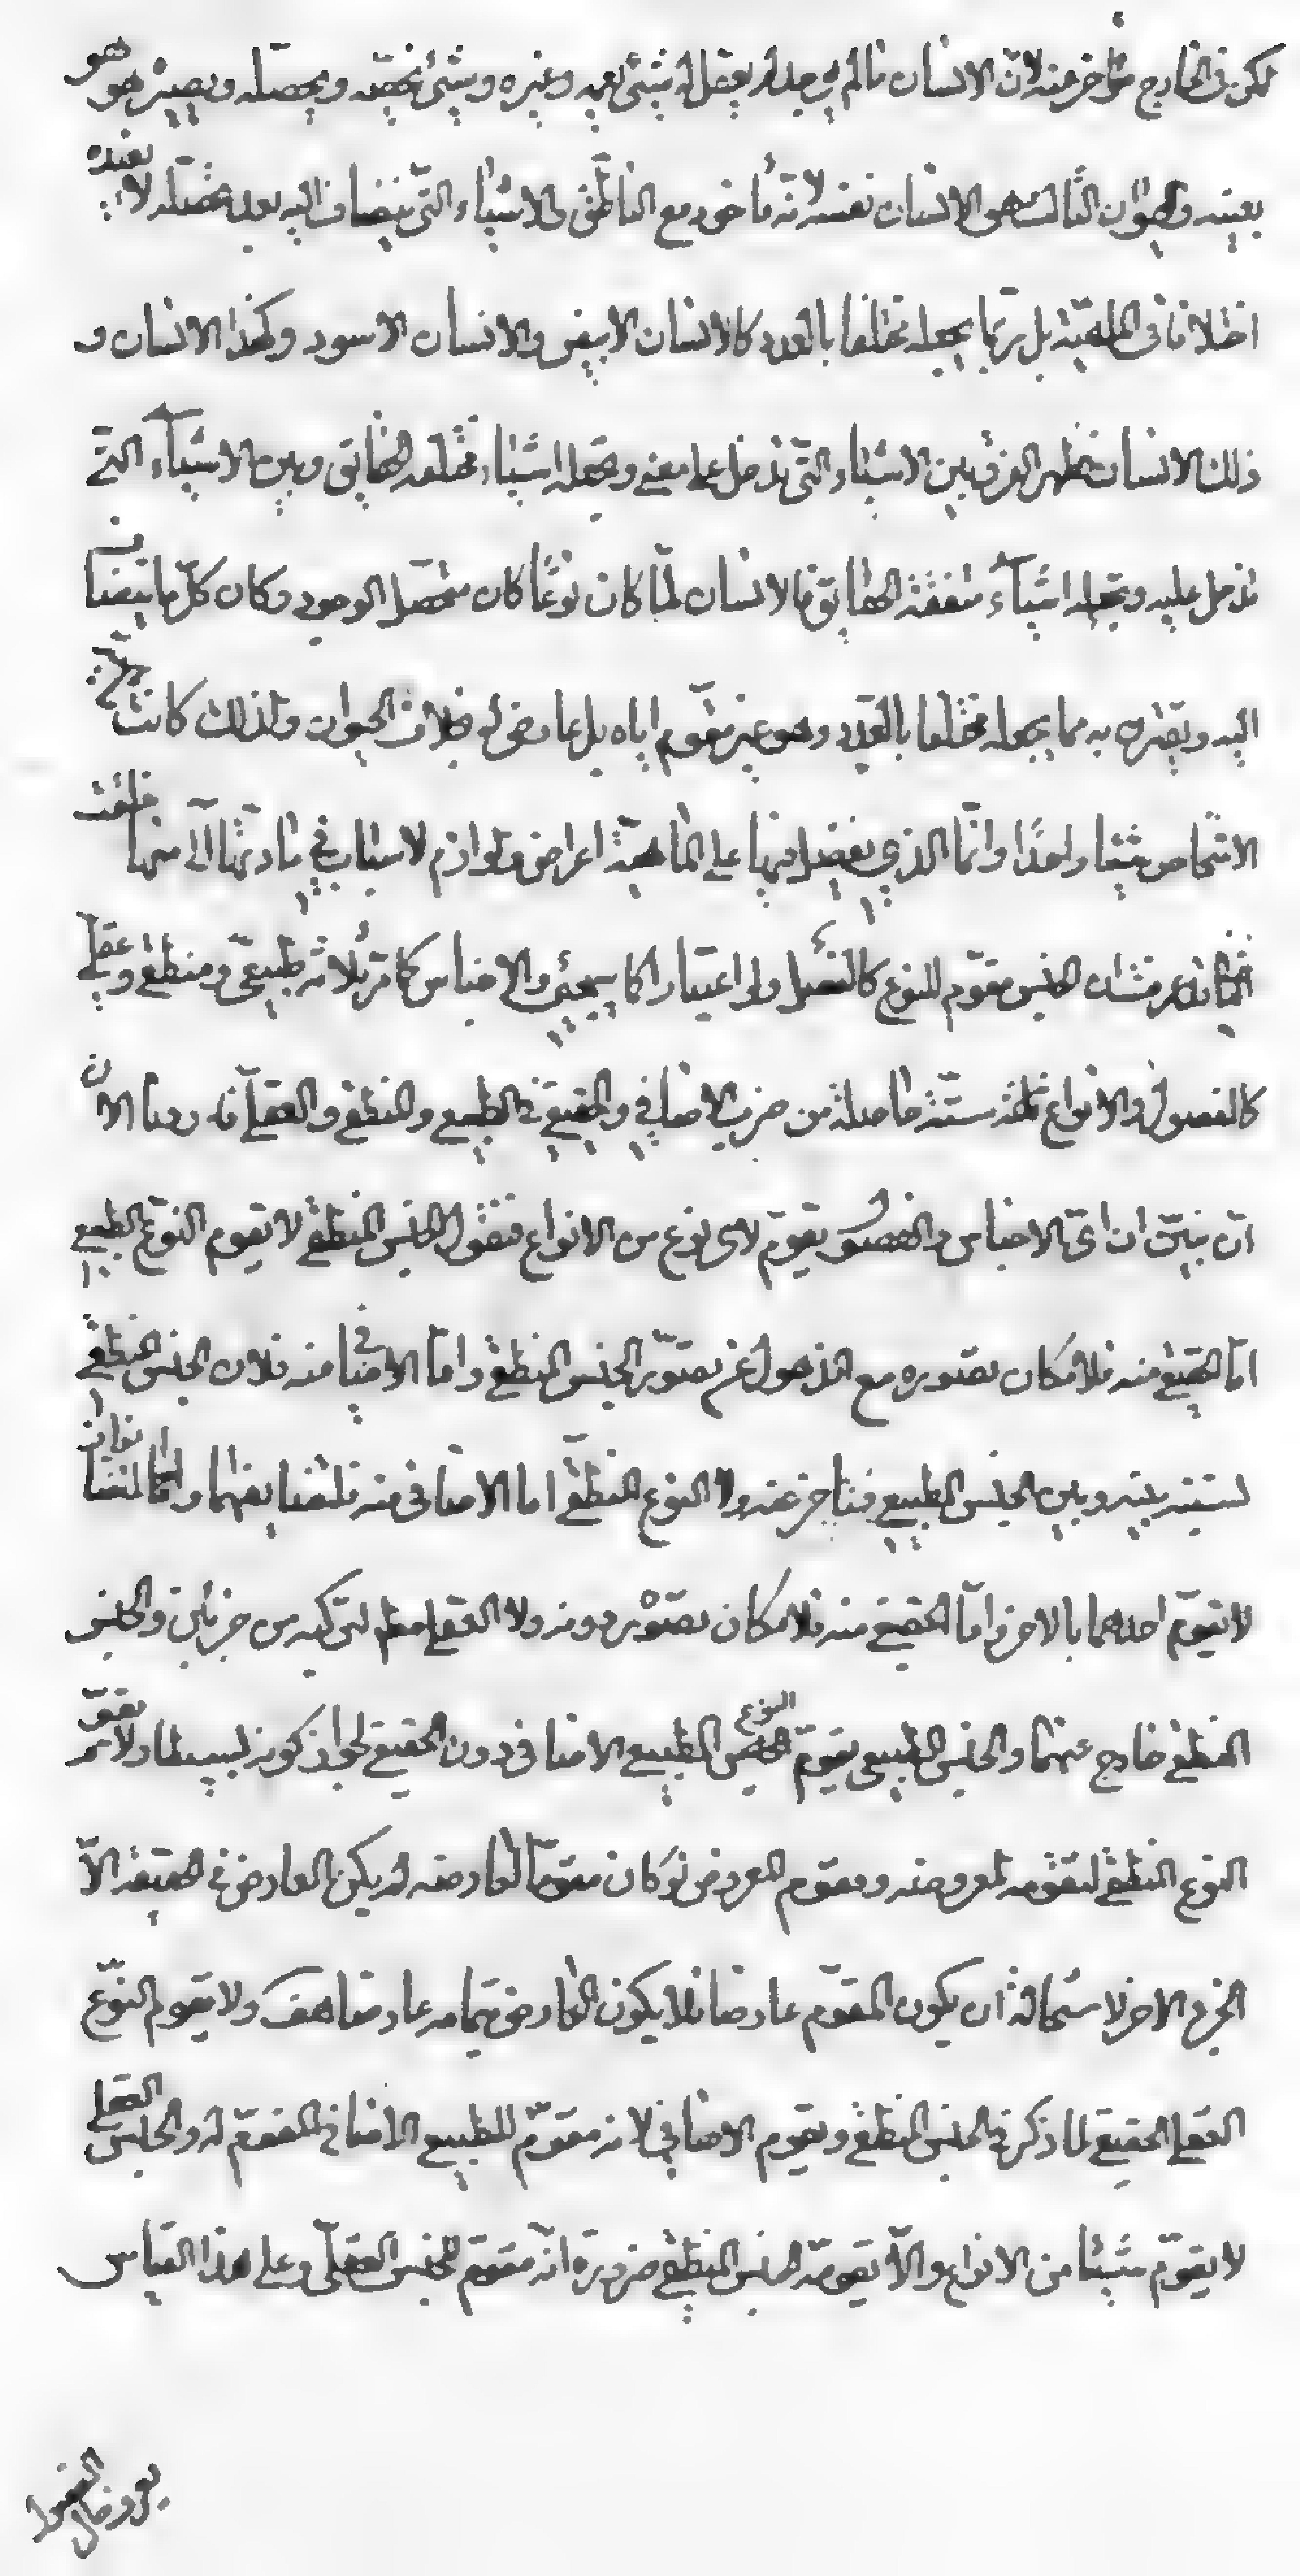 لكن فى الخارج متأخر عنه لانّ الانسان ما لم يوجد لم يعقل له شئ يعمه وغيره وشئ يخصّه ويحصّله ويصيره هو هو
بعينه والحيوان الثالث هو الانسان نفسه لانّه مأخوذ مع الناطق والاشياء التى ينضاف اليه بعد تحصّله لا يفيده
اختلافا فى الماهيّة بل ربّما يجعله مختلفا بالعدد كالانسان الابيض والانسان الاسود وكهذا الانسان و
ذلك الانسان فظهر الفرق بين الاشياء التى تدخل على معنى وتجعله اشياء مختلفه الحقايق وبين الاشيآء التى
تدخل عليه وتجعله اشيآء متفقة الحقايق فالانسان لمّا كان نوعًا كان متحصّل الوجود وكان كلّ ما ينضاف
اليه ويقترن به مما يجعله مختلفا بالعدد وهو غير مقوّم اياه بل عارض له بخلاف الحيوان ولذلك كانت
الاشخاص شيئا واحدًا وانّما الذى يفضل فيها على الماهيّة اعراض ولوازم لاسباب فى مادتها الّتى منها خلقت
الجنس مقوّم للنوع كالفصل وله اعتبارا كما سيجئ والاجناس كما مرّ ثلاثه طبيعىّ ومنطقى وعقلى
كالفصول والانواع ستّة حاصلة من ضرب الاضافى والحقيقى فى الطبيعى والمنطقى والعقلى فاردنا الان
ان نبيّن ان اىّ الاجناس والفصول يقوّم لاى نوع من الانواع فنقول الجنس المنطقى لا يقوم النوع الطبيعى
امّا الحقيقى منه فلامكان تصّوره مع الذهول عن تصوّر الجنس المنطقى وامّا الاضافى منه فلان الجنس المنطقى
نسبته بينه وبين الجنس الطبيعى فيتأخر عنه ولا النوع المنطقىّ اما الاضافى منه فلتضايفهما وانّما المتضايفان
لا يقوّم احدهما بالاخر وامّا الحقيقى منه فلامكان تصوّره دونه ولا العقلى مطلقا لتركبه من جزئين والجنس
المنطقى خارج عنهما والجنس الطبيعى يقوّم النوع الطبيعى الاضافى دون الحقيقى لجواز كونه بسيطا ولا يقوّم
النوع المنطقى لتقوّمه لمعروضه ومقوم المعروض لو كان مقوّما لعارضه لم يكن العارض فى الحقيقه الاّ
الجزء الاخر لاستحالة ان يكون المقوّم عارضا فلا يكون العارض بتمامه عارضا هف ولا يقوم النوّع
العقلى الحقيقى لما ذكر فى الجنس المنطقى ويقوم الاضافى لانه مقوّم للطبيعى الاضافى المقوّم له والجنس العقلى
لا يقوّم شيئا من الانواع والاّ يقومّه الجنس المنطقى ضرورة انّه مقوّم للجنس العقلىّ وعلى هذا القياس